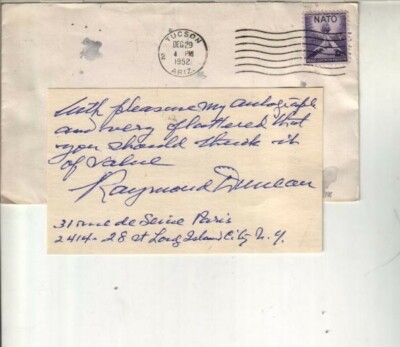 TUCSON
DEC 29
4 PM
1952
ARIZ.
NATO
With pleasure my autograph
and very flattered that
you should think it
of value
Raymond Duncan
31 rue de Seine Paris
2414-28 st Long Island City N.Y.